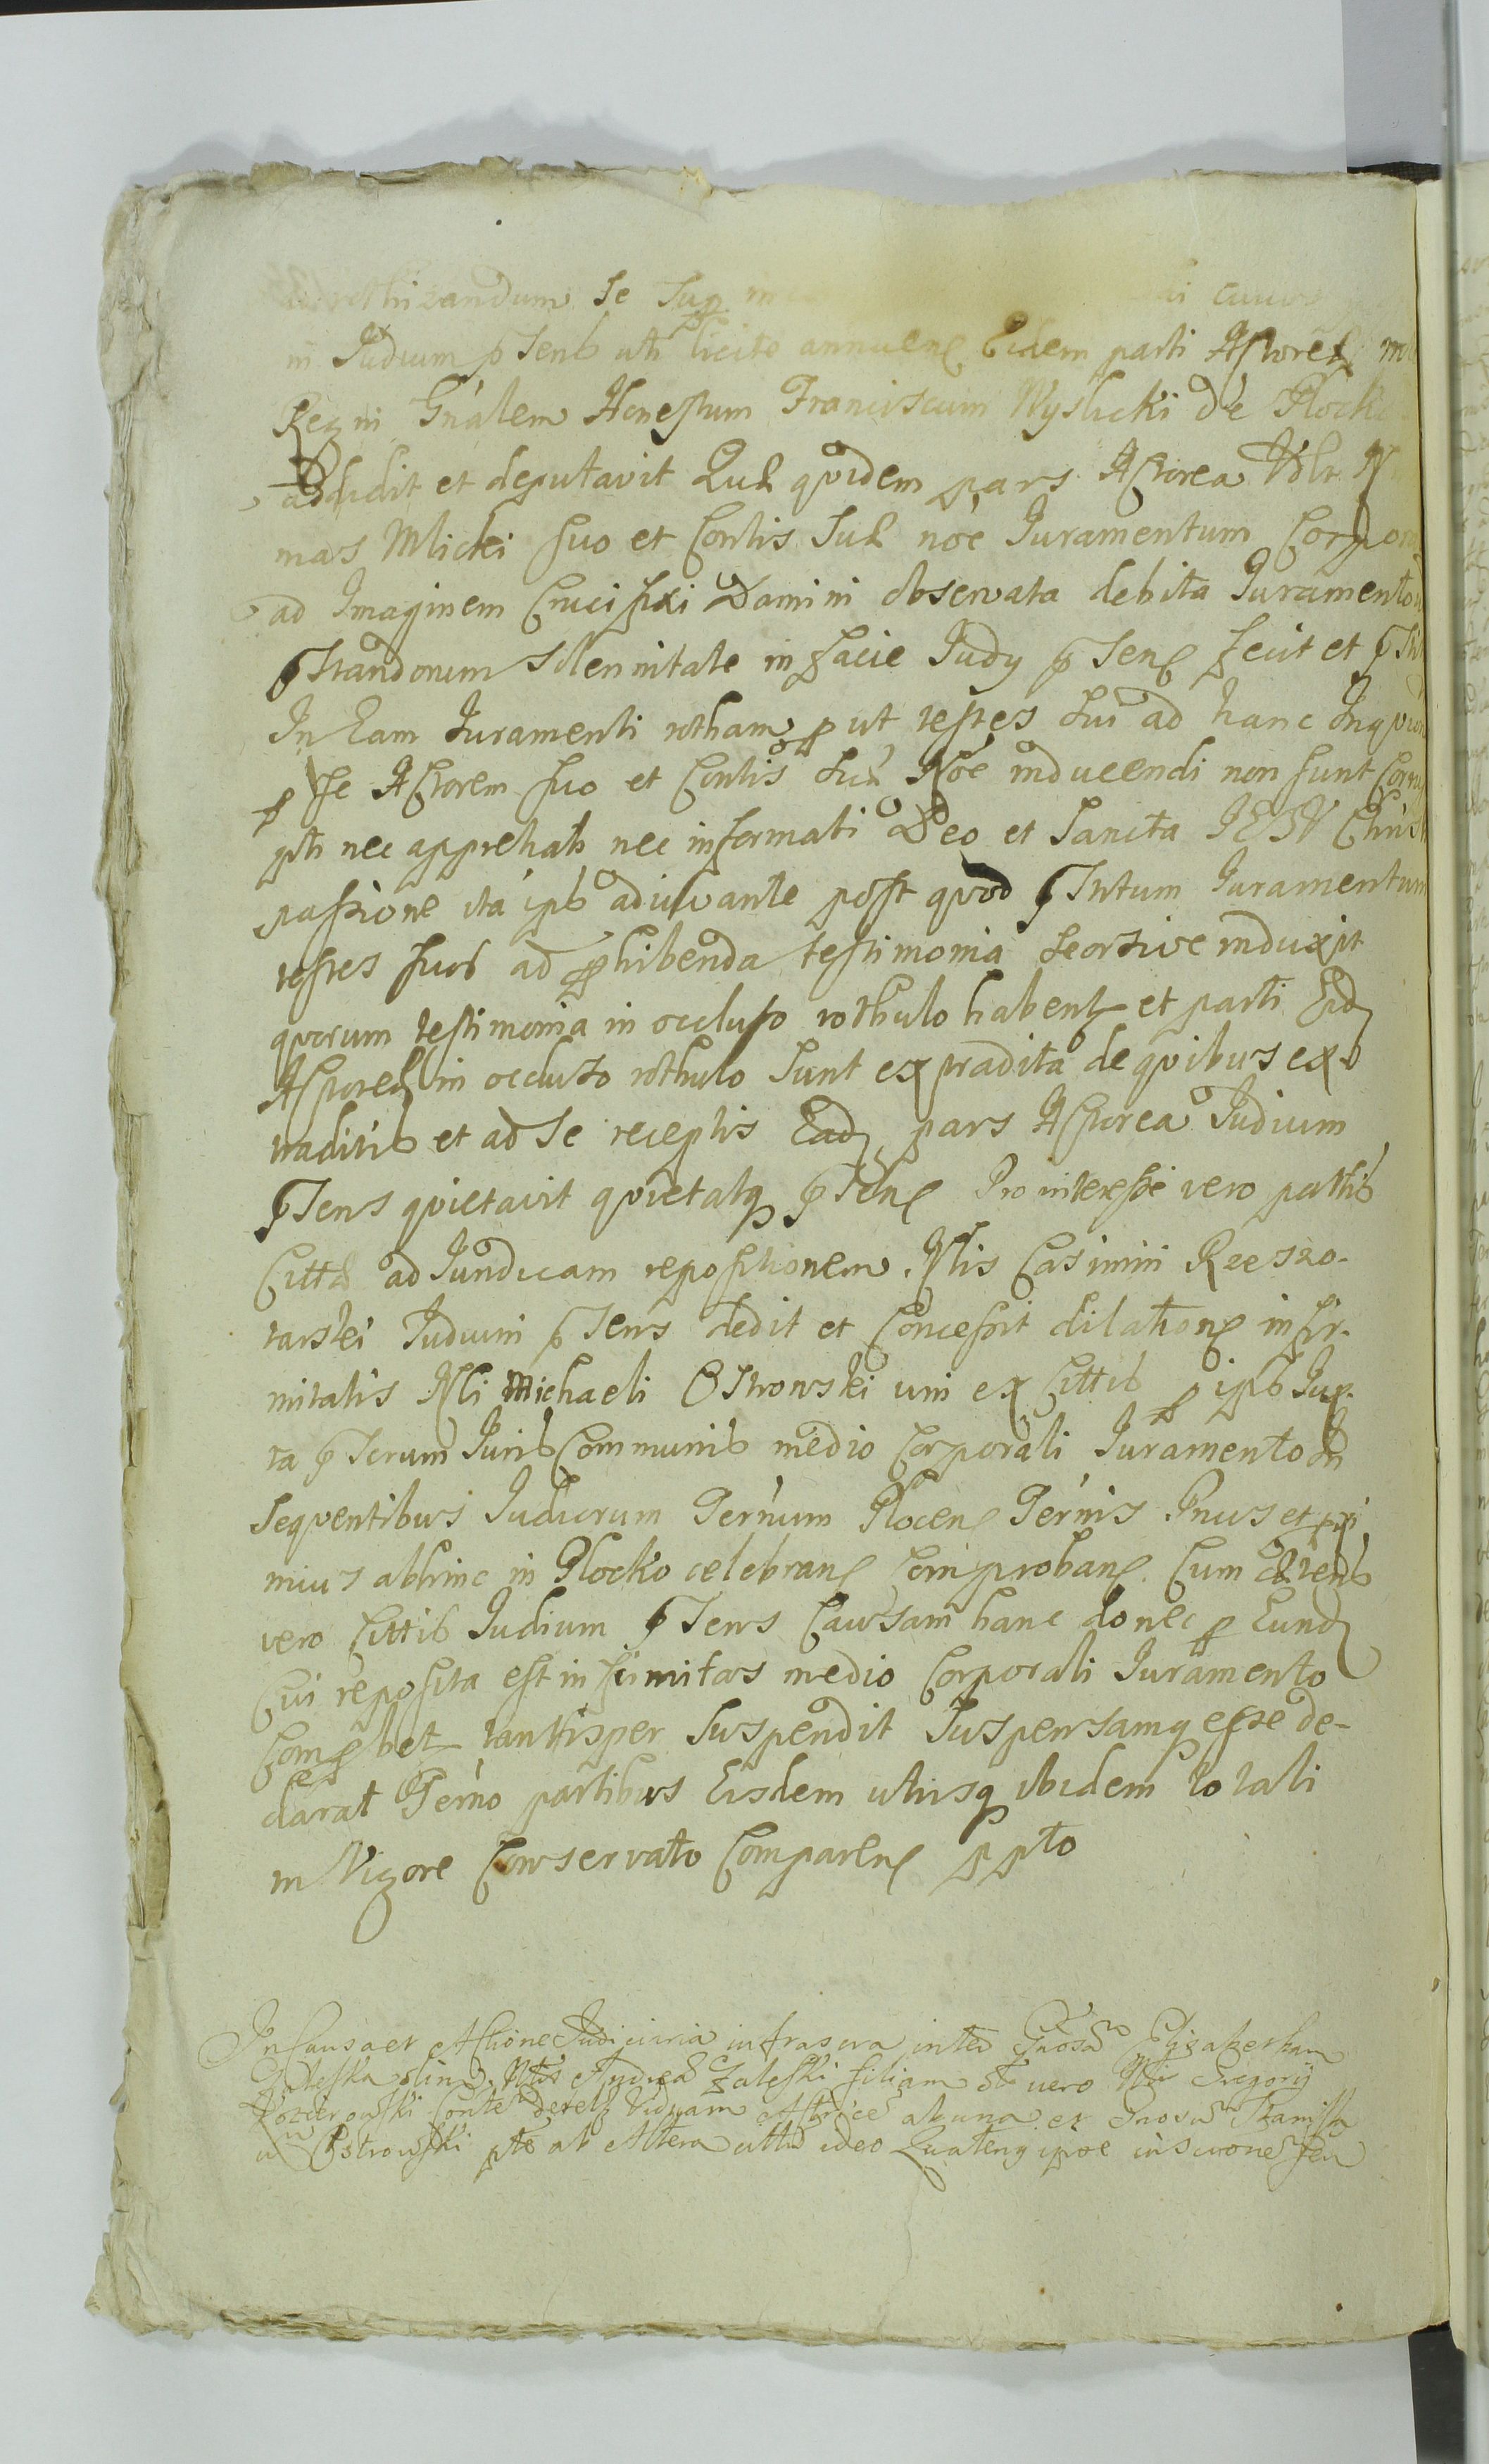 se sup
in Judium pñsens uti licite annuens Eidem parti Actoreæ
Regni Gñalem Honestum Franciscum Wyslicki de Plocko
addidit et deputavit Quæ quidem pars Actorea Nblr
mas Mlicki suo et Contis suæ noe Juramentum Corpora
ad Imaginem Crucifixi Domini observata debita Juramento
pstandorum solennitate in facie Judy psens fecit et
In Eam Juramenti rotham put testes sui ad hanc Inqvi
p se Actorem suo et Contis suæ Noe inducendi non sunt Corru
pti nec apprehati nec informati Deo et Sancta JESV Christ
passione ita ipso adiuvante post quod pstitum Juramentum
testes suos ad phibenda testimonia seorsive induxit
quorum testimonia in occluso rothulo habent et parti Eid
Actoreæ in occluso rothulo sunt extradita de quibus ex
traditis et ad se receptis Ead pars Actorea Judium
psens quietavit quietatq psens Pro interesse vero partis
Cittæ ad Juridicam repositionem Nlis Casimiri Rzeszo-
tarski Judium psens dedit et Concessit dilations infir-
mitatis Nli Michaeli Ostrowski uni ex Cittis p ipso Jux-
ta pserum Juris Communis medio Corporali Juramento In
sequentibus Judiorum Terrium Plocens Terris Prius et pxi
mius abhinc in Plocko celebrans comprobans. Cum
vero Cittis Judium psens Causam hanc donec p Eund
Cui reposita est infirmitas medio Corporali Juramento
Compbet tantisper suspendit suspensamq esse de-
clarat Termo partibus Eisdem utrisq ibidem totali
in Vigore Conservato Comparens ppto
In Causa et Actione Judiciaria infrascra inter Gnosa Elizabetham
Zaleska olim Andrea Zaleski filiam vero Gregorij
Conte derelz viduam Actrice ab una et Gnosu Stanisla
u Ostrowski pte ab Altera citto ideo Quatenq ipse inscrone seu